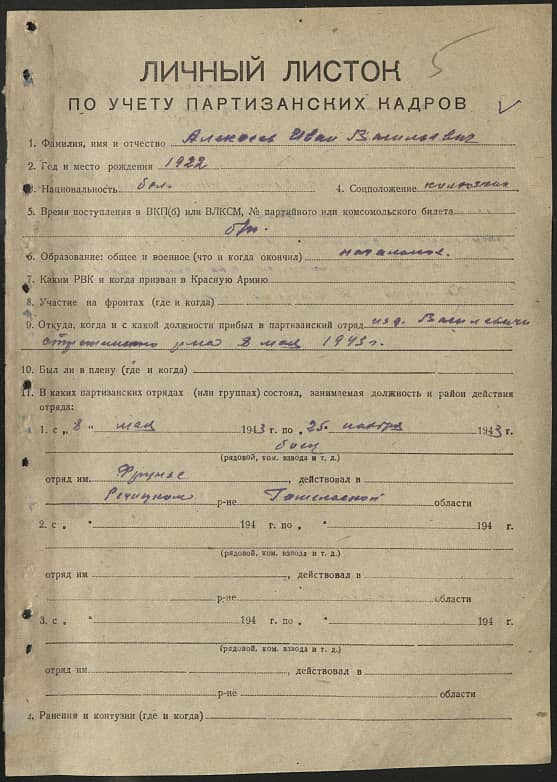 5
ЛИЧНЫЙ ЛИСТОК
ПО УЧЕТУ ПАРТИЗАНСКИХ КАДРОВ
1. Фамилия, имя и отчество Алексеев Иван Васильевич
2. Год и место рождения 1922
3. Национальность бел. 4. Соцположение колхозник
5. Время поступления в ВКП(б) или ВЛКСМ, № партийного или комсомольского билета
б/п.
6. Образование: общее и военное (что и когда окончил) начальное.
7. Каким РВК и когда призван в Красную Армию
8. Участие на фронтах (где и когда)
9. Откуда, когда и с какой должности прибыл в партизанский отряд из д. Василевичи
8 мая 1943 г.
10. Был ли в плену (где и когда)
11. В каких партизанских отрядах (или группах) состоял, занимаемая должность и район действия
отряда:
1. с „ 8 " мая 1943 г. по „ 25 ноября 1943 г.
боец
(рядовой, ком. взвода и т. д.)
отряд им. Фрунзе, действовал в
Речицком р-не Гомельской области
2. с „ " 194 г. по „ " 194 г.
(рядовой, ком. взвода и т. д.)
отряд им , действовал в
р-не области
3. с „ " 194 г. по „ " 194 г.
(рядовой, ком. взвода и т. д.)
отряд им , действовал в
р-не области
2. Ранения и контузии (где и когда)